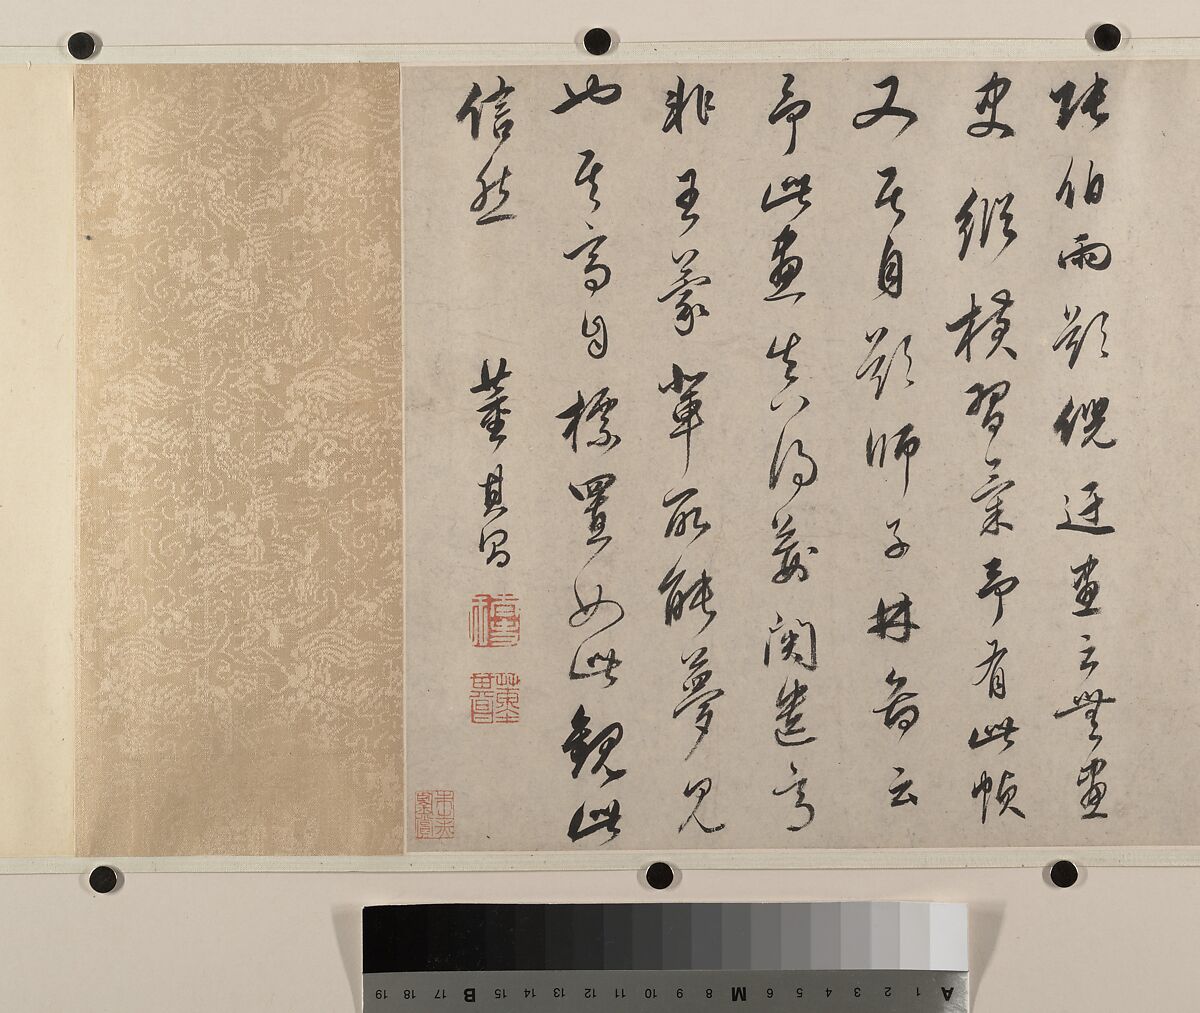 張伯雨題倪迂畫云無畫
史縱橫習氣予有此幀
又其自題師子林圖云
予此畫真得荊關遺意
非王蒙輩所能夢見
也其高自標置如此觀此
信然
董其昌
A 1 2 3 4 5 6 M 8 9 10 11 12 13 14 15 B 17 18 19